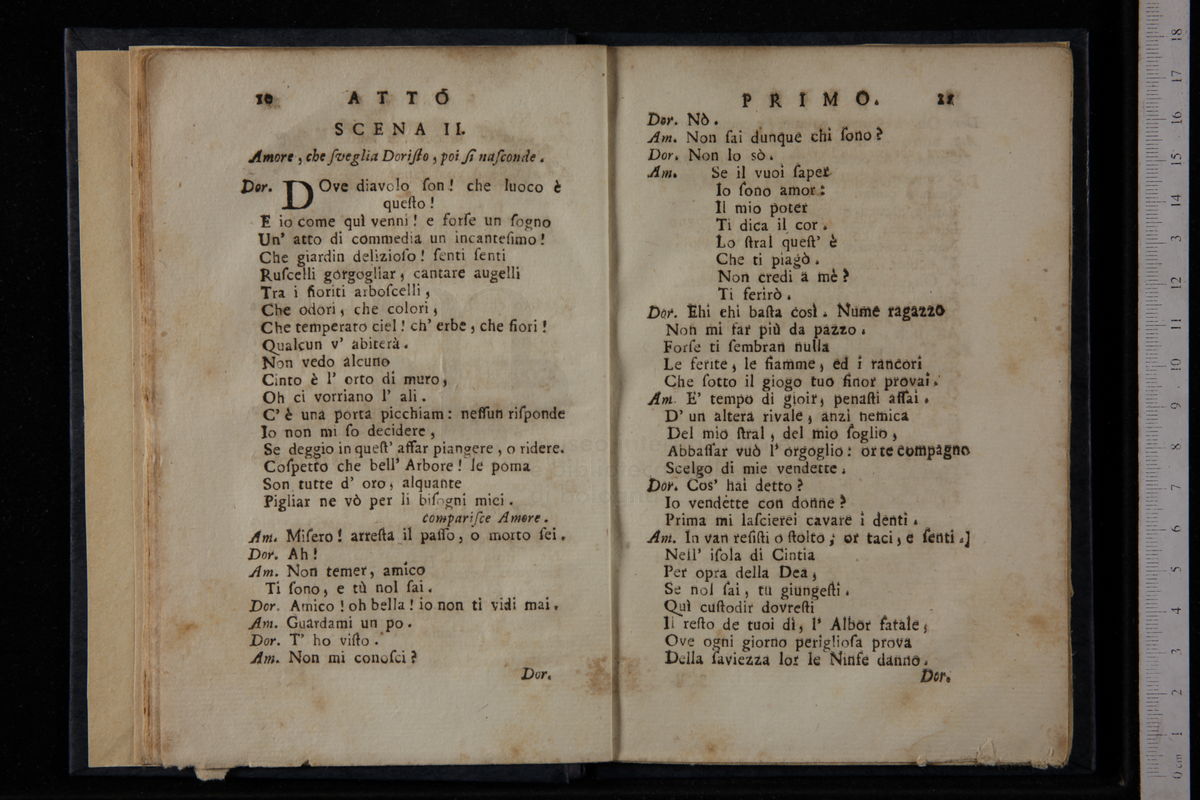 10 ATTO
SCENA II.
Amore, che sveglia Doristo, poi si nasconde.
Dor. DOve diavolo son! che luoco è
questo!
E io come quì venni! e forse un sogno
Un' atto di commedia un incantesimo!
Che giardin delizioso! senti senti
Ruscelli gorgogliar, cantare augelli
Tra i fioriti arboscelli,
Che odori, che colori,
Che temperato ciel! ch' erbe, che fiori!
Qualcun v' abiterà.
Non vedo alcuno
Cinto è l' orto di muro,
Oh ci vorriano l' ali.
C' è una porta picchiam: nessun risponde
Io non mi so decidere,
Se deggio in quest' affar piangere, o ridere.
Cospetto che bell' Arbore! le poma
Son tutte d' oro, alquante
Pigliar ne vò per li bisogni miei.
comparisce Amore.
Am. Misero! arresta il passo, o morto sei.
Dor. Ah!
Am. Non temer, amico
Ti sono, e tù nol sai.
Dor. Amico! oh bella! io non ti vidi mai.
Am. Guardami un po.
Dor. T' ho visto.
Am. Non mi conosci?
Dor.
PRIMO. 11
Dor. Nò.
Am. Non sai dunque chi sono?
Dor. Non lo sò.
Am. Se il vuoi saper
Io sono amor:
Il mio poter
Ti dica il cor.
Lo stral quest' è
Che ti piagò.
Non credi a mè?
Ti ferirò.
Dor. Ehi ehi basta così. Nume ragazzo
Non mi far più da pazzo.
Forse ti sembran nulla
Le ferite, le fiamme, ed i rancori
Che sotto il giogo tuo finor provai.
Am. E' tempo di gioir, penasti assai.
D' un altera rivale, anzi nemica
Del mio stral, del mio soglio,
Abbassar vuò l' orgoglio: or te compagno
Scelgo di mie vendette.
Dor. Cos' hai detto?
Io vendette con donne?
Prima mi lascierei cavare i denti.
Am. In van resisti o stolto; or taci, e senti.]
Nell' isola di Cintia
Per opra della Dea,
Se nol sai, tu giungesti.
Quì custodir dovresti
Il resto de tuoi dì, l' Albor fatale,
Ove ogni giorno perigliosa prova
Della saviezza lor le Ninfe danno.
Dor.